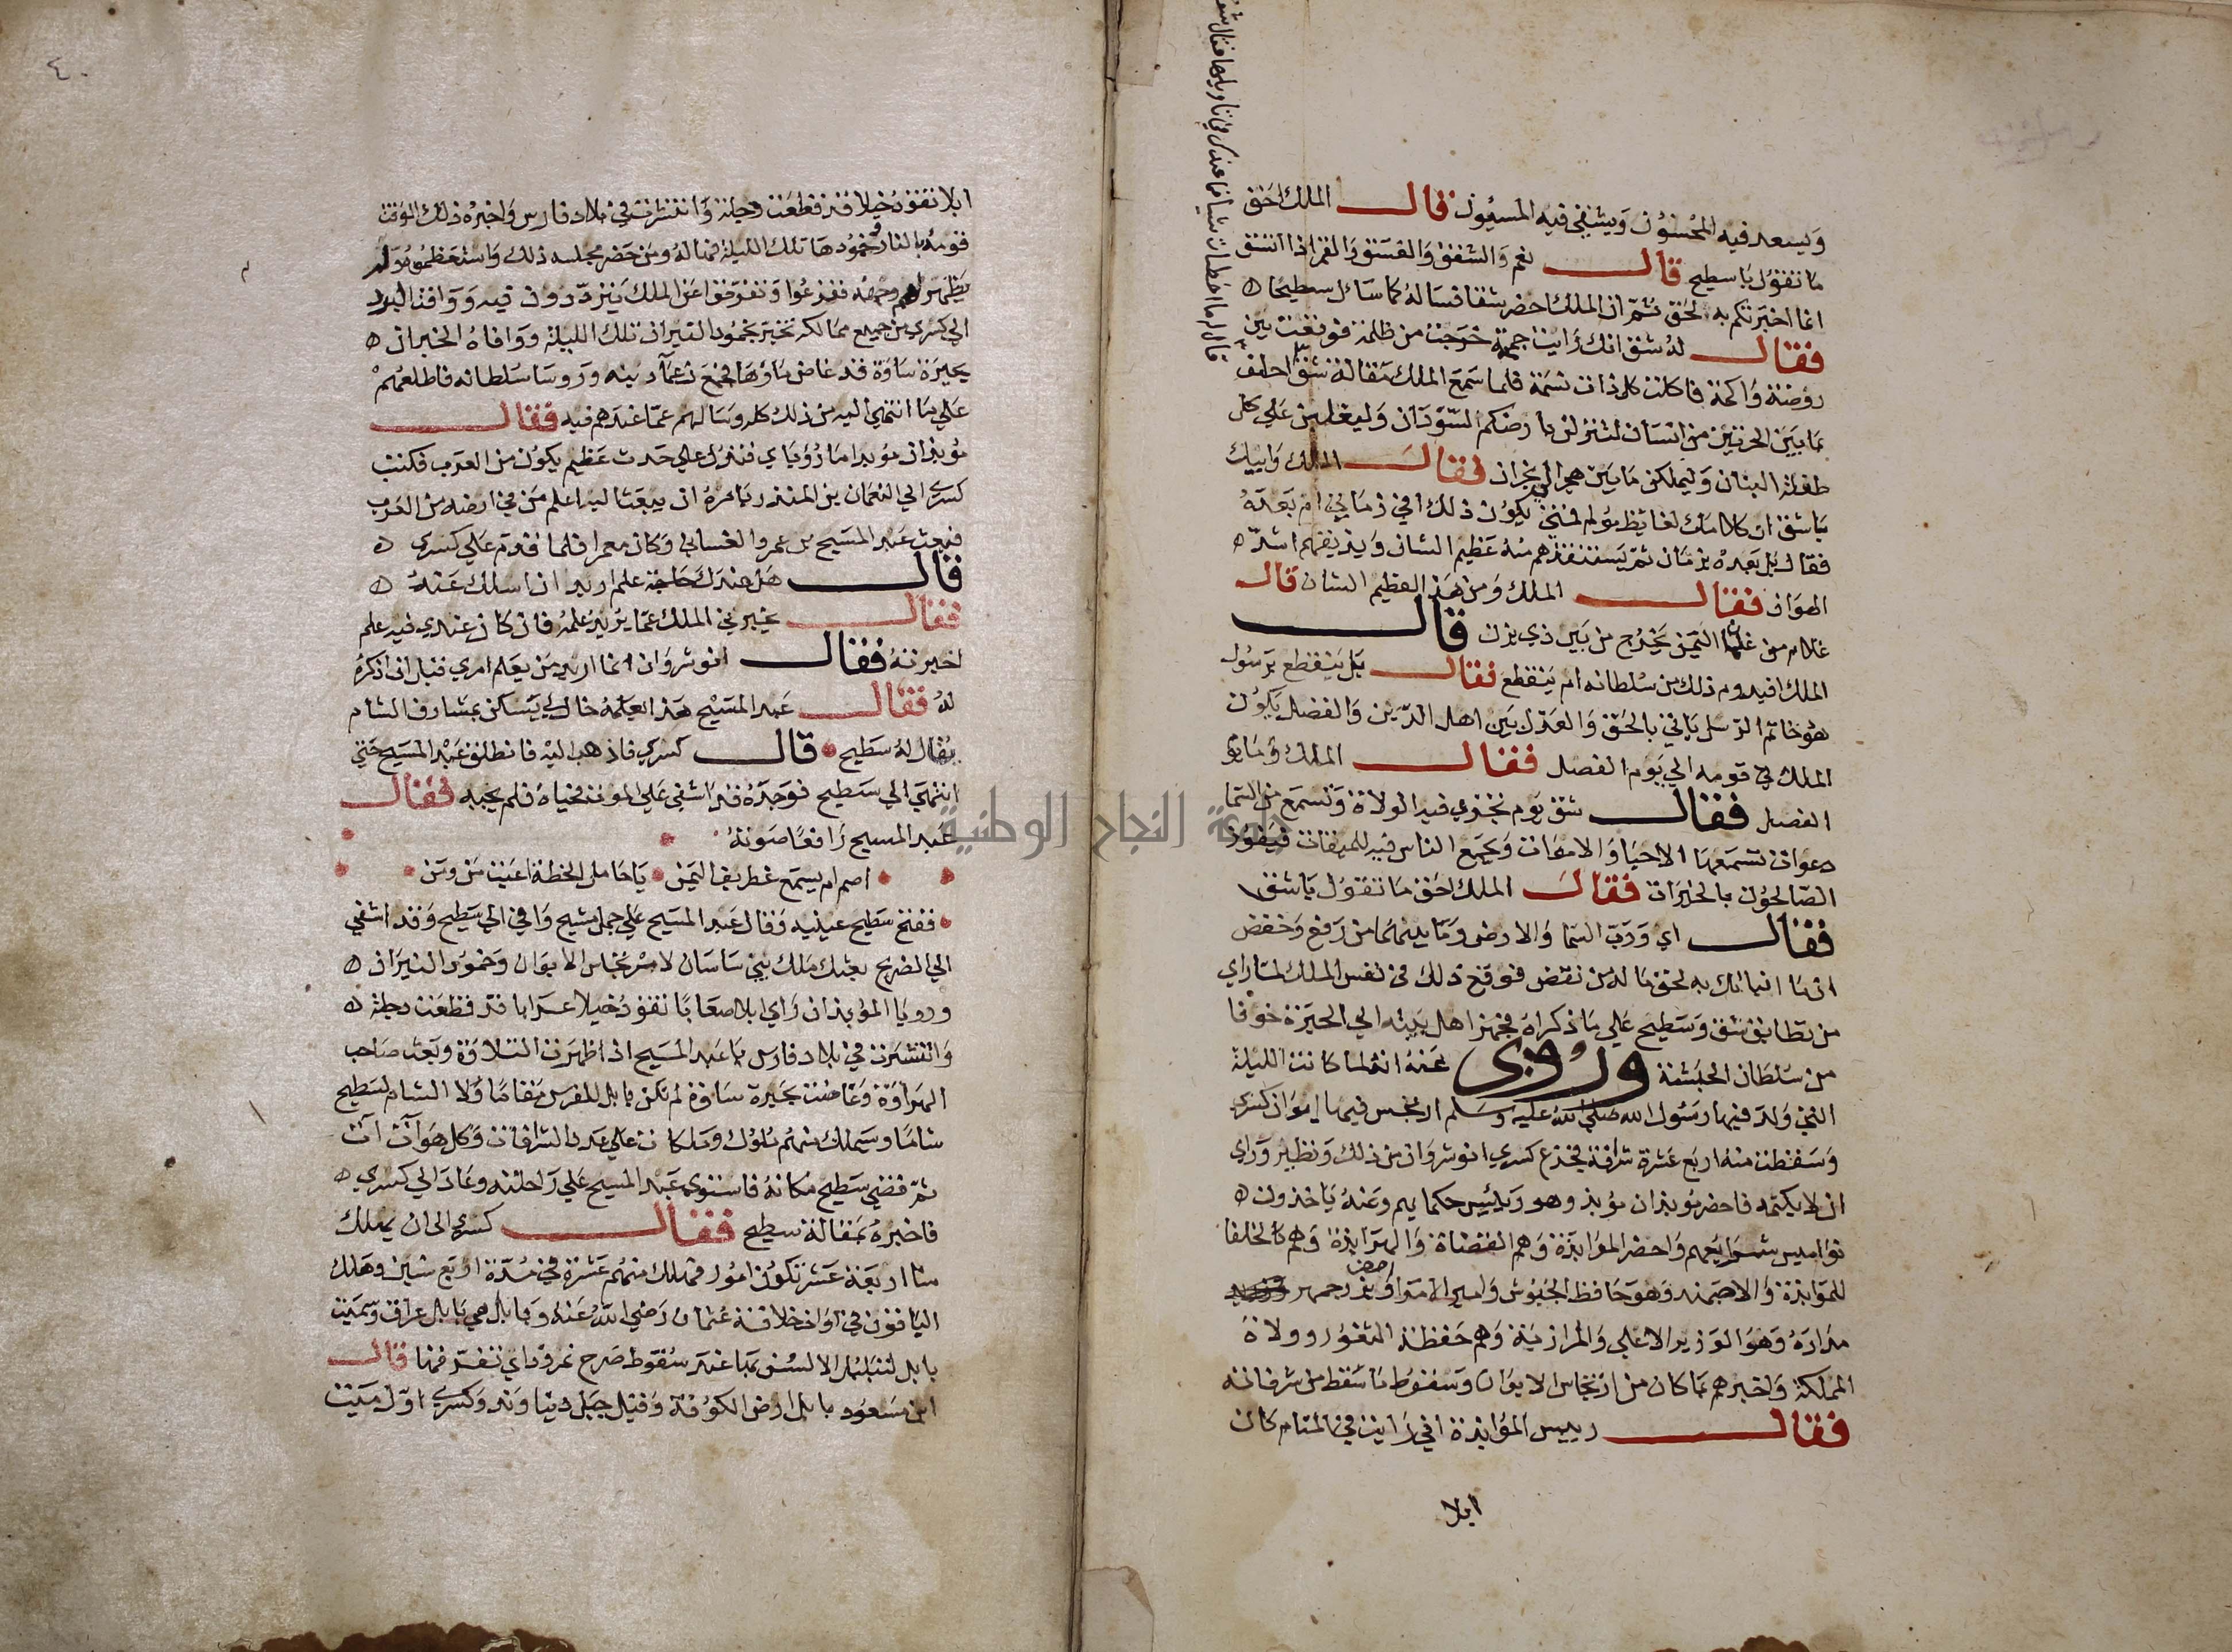 ويسعد فيه المحسنون ويشقي فيه المسيؤن قال الملك احق
ما تقول يا سطيح قال نعم والشفق والغسق والقمر اذا اتسق
انما اخبرتكم به لحق ثم ان الملك احضر شقا فساله كما سال سطيحا ه
فقال له شق انك رايت جمجمة خرجت من ظلمة فوقعت بين
روضة واكمة فاكلت كل ذات نسمة فلما سمع الملك مقالة شق احلف
بما بين الحرتين من انسان لتنزلن بارضكم السودان وليغلبن علي كل
طفلة البنان وليملكن ما بين هجر الي نجران فقال الملك وابيك
يا شق ان كلامك لغايظ مولم فمتي يكون ذلك افي زماني ام بعده
فقال بل بعده بزمان ثم يستنقذهم منه عظيم الشان ويذيقهم اشد ه
الهوان فقال الملك ومن هذا العظيم الشان قال
غلام من غلمان اليمن يخرج من بين ذي يزن قال
الملك افيدوم ذلك من سلطانه ام ينقطع فقال بل ينقطع برسول
هو خاتم الرسل ياتي بالحق والعدل بين اهل الدين والفضل يكون
الملك في قومه الي يوم الفصل فقال الملك وما يوم
الفصل فقال شق يوم تجزي فيه الولاة وتسمع من السما
دعوات تسمعها الاحيا والاموات ويجمع الناس فيه للميقات فيفوز
الصالحون بالخيرات فقال الملك احق ما تقول يا شق
فقال اي ورب السما والارض وما بينهما من رفع وخفض
ان ما انباتك به لحق ما له من نقض فوقع ذلك في نفس الملك لما راي
من تطابق شق وسطيح علي ما ذكراه فجهز اهل بيته الي الحيرة خوفا
من سلطان الحبشة وروي عنه انه لما كانت الليلة
التي ولد فيها رسول الله صلي الله عليه وسلم ارتجس فيها ايوان كسري
وسقطت منه اربع عشرة شرافة فجزع كسري انوشروان من ذلك وتطير وراي
ان لا يكتمه فاحضر موبذان موبذ وهو رييس حكمايهم وعنه ياخذون ه
نواميس شرايعهم واحضر الموابذة وهم القضاة والهرابذة وهم كالخلفا
للموابذة والاصبهبذ وهو حافظ الجيوش وامير الامرا واحضر بزرجمهر
مداره وهو الوزير الاعلي والمرازبة وهم حفظة الثغور وولاة
المملكة واخبرهم بما كان من ارتجاس الايوان وسقوط ما سقط من شرفاته
فقال رييس الموابذة اني رايت في المنام كان
ابلا
قال له ما اخطات شيا فما عندك في تاويلها فقال شق
٤٠
ابلا تقود خيلا قد قطعت دجلة وانتشرت في بلاد فارس واخبره ذلك الوقت
قومه بالنار وخمودها تلك الليلة فهاله ومن حضر مجلسه ذلك واستعظموه ولم
يظهر لهم وجهه ففزعوا وتفرقوا عن الملك يترددون فيه ووافت البرد
الي كسري من جميع ممالكه تخبر بخمود النيران تلك الليلة ووافاه الخبر ان ه
بحيرة ساوة قد غاض ماؤها فجمع زعمآ دينه وروسا سلطانه فاطلعهم
علي ما انتهي اليه من ذلك كله وسالهم عما عندهم فيه فقال
موبذان موبذ اما رؤياي فتدل علي حدث عظيم يكون من العرب فكتب
كسري الي النعمان بن المنذر يامره ان يبعث اليه اعلم من في ارضه من العرب
فبعث عبد المسيح بن عمرو الغساني وكان معمرا فلما قدم علي كسري ه
قال هل عندك حاجة علم اريد ان اسلك عنه ه
فقال يخبرني الملك عما يريد علمه فان كان عندي فيه علم
اخبرته فقال انوشروان انما اريد من يعلم امري قبل ان اذكره
له فقال عبد المسيح هذا يعلمه خال لي يسكن بمشارف الشام
يقال له سطيح قال كسري فاذهب اليه فانطلق عبد المسيح حتي
انتهي الي سطيح فوجده قد اشفي علي الموت فحياه فلم يجبه فقال
عبد المسيح رافعا صوته
اصم ام يسمع غطريف اليمن يا حامل الخطة اعيت من ومن
ففتح سطيح عينيه وقال عبد المسيح علي جمل مشيح وافي الي سطيح وقد اشفي
الي الضريح بعثك ملك بني ساسان لامر ارتجاس الايوان وخمود النيران ه
ورويا الموبذان راي ابلا صعابا تقود خيلا عرابا قد قطعت دجلة ه
وانتشرت في بلاد فارس يا عبد المسيح اذا ظهرت التلاوة وبعث صاحب
الهراوة وغاضت بحيرة ساوة لم تكن بابل للفرس مقاما ولا الشام لسطيح
شاما وسيملك منهم ملوك وملكات علي عدد الشرافات وكل ما هو آت آت
ثم قضي سطيح مكانه فاستوي عبد المسيح علي راحلته وعاد الي كسري ه
فاخبره بمقالة سطيح فقال كسري الي ان يملك
منا اربعة عشر تكون امور فملك منهم عشرة في مدة اربع سنين وهلك
الباقون في اواخر خلافة عثمان رضي الله عنه وبابل هي بابل عراق وسميت
بابل لتبلبل الالسن بها عند سقوط صرح نمروذ اي تفرقها قال
ابن مسعود بابل ارض الكوفة وقيل جبل دنباوند وكسري اول ميت
جامعة النجاح الوطنية